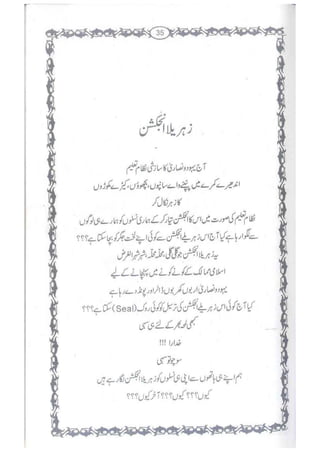 35
زہریلا انجکشن
آج یہود و نصاریٰ کا سازشی نظام تعلیم
اندھیرے کمرے میں پلنے والے سانپوں، بچھوؤں، کیڑے مکوڑوں
کا زہر نکال کر
نظام تعلیم کی صورت میں اس کا انجکشن تیار کر کے ہماری نسلوں کو ہمارے ہی لوگوں
سے لگوا رہا ہے کیا آج اس زہریلے انجکشن سے کوئی اپنے لخت جگر کو بچا سکتا ہے؟؟؟
یہ زہریلا انجکشن جو گلی گلی، محلہ محلہ، شہر شہر الغرض
اسلامی ممالک کے کونے کونے میں پہنچانے کے لیے
یہود و نصاریٰ اربوں کھربوں ڈالر اور پونڈ دے رہا ہے
کیا آج کوئی اس زہریلے انجکشن کی ترسیل کو کوئی روک (Seal) سکتا ہے؟؟؟
کبھی لمحہ بھر کے لئے ہی سہی
خدارا !!!
سوچو تو سہی
ہم اپنے ہی ہاتھوں سے اپنی ہی نسلوں کو زہریلا انجکشن لگا رہے ہیں
کیوں؟؟؟ کیوں؟؟؟ آخر کیوں؟؟؟